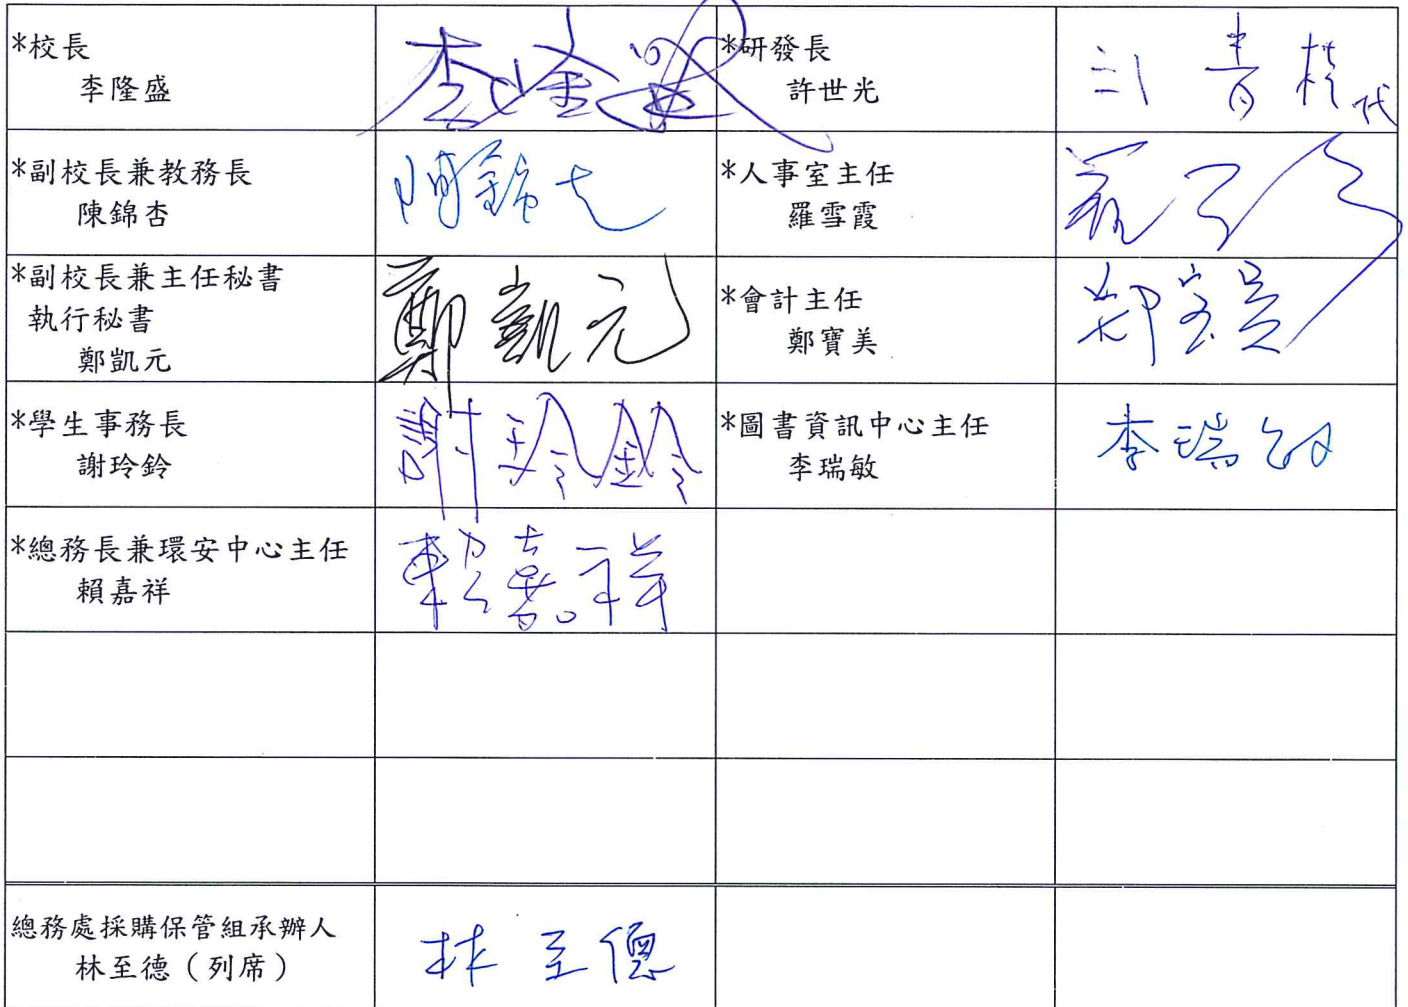 *校長
李隆盛
李隆盛
*研發長
許世光
青
代
*副校長兼教務長
陳錦杏
陳錦杏
*人事室主任
羅雪霞
*副校長兼主任秘書
執行秘書
鄭凱元
鄭凱元
*會計主任
鄭寶美
鄭寶美
*學生事務長
謝玲鈴
謝玲鈴
*圖書資訊中心主任
李瑞敏
李瑞敏
*總務長兼環安中心主任
賴嘉祥
賴嘉祥
總務處採購保管組承辦人
林至德(列席)
林至德